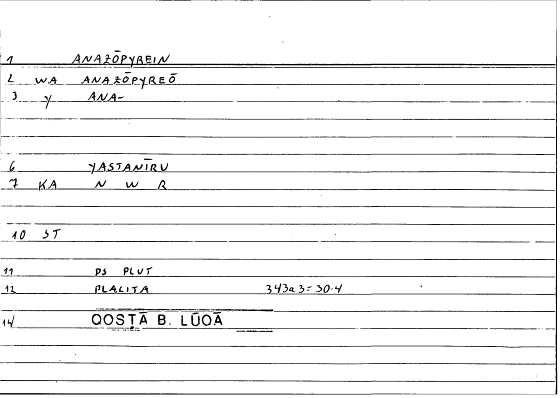 1 ANAZŌPYREIN
2 WA ANAZŌPYREŌ
3 y ANA-
6 YASTANĪRU
7 KA N W R
10 ST
11 PS PLUT
12 PLALITA 343a3=30.4
14 QOSṬĀ B. LŪQĀ